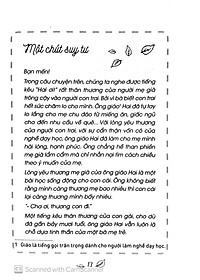 Một chút suy tư
Bạn mến!
Trong câu chuyện trên, chúng ta nghe được tiếng
kêu "Hai ơi!" rất thân thương của người mẹ già
trông cậy vào người con trai. Bởi vì bà biết con trai
hết sức chăm lo cho mình. Ông giáo¹ Hai đã tự tay
lo lắng cho mẹ chu đáo từ miếng ăn, giấc ngủ
cho đến nhu cầu về quê... Với lòng yêu thương
của người con trai, với sự cẩn thận vốn có của
nghề dạy học, ông giáo Hai đã làm cho mẹ mình
hài lòng, hạnh phúc. Ông chẳng hề than phiền
mẹ già lẩm cẩm mà chỉ nhẫn nại tìm cách chiều
theo ý muốn của mẹ.
Lòng yêu thương mẹ già của ông giáo Hai là một
bài học sống động cho con. Ông không biết
rằng mình càng thương mẹ bao nhiêu thì con cái
lại càng thương mình bấy nhiêu.
"- Cha ơi, thương con đi."
Một tiếng kêu thân thương của con gái, cho dù
đã gần bảy mươi tuổi, ông giáo Hai vẫn luôn là
chỗ dựa tinh thần của một bà mẹ trẻ.
1 Giáo là tiếng gọi trân trọng dành cho người làm nghề dạy học.
17
Scanned with CamScanner